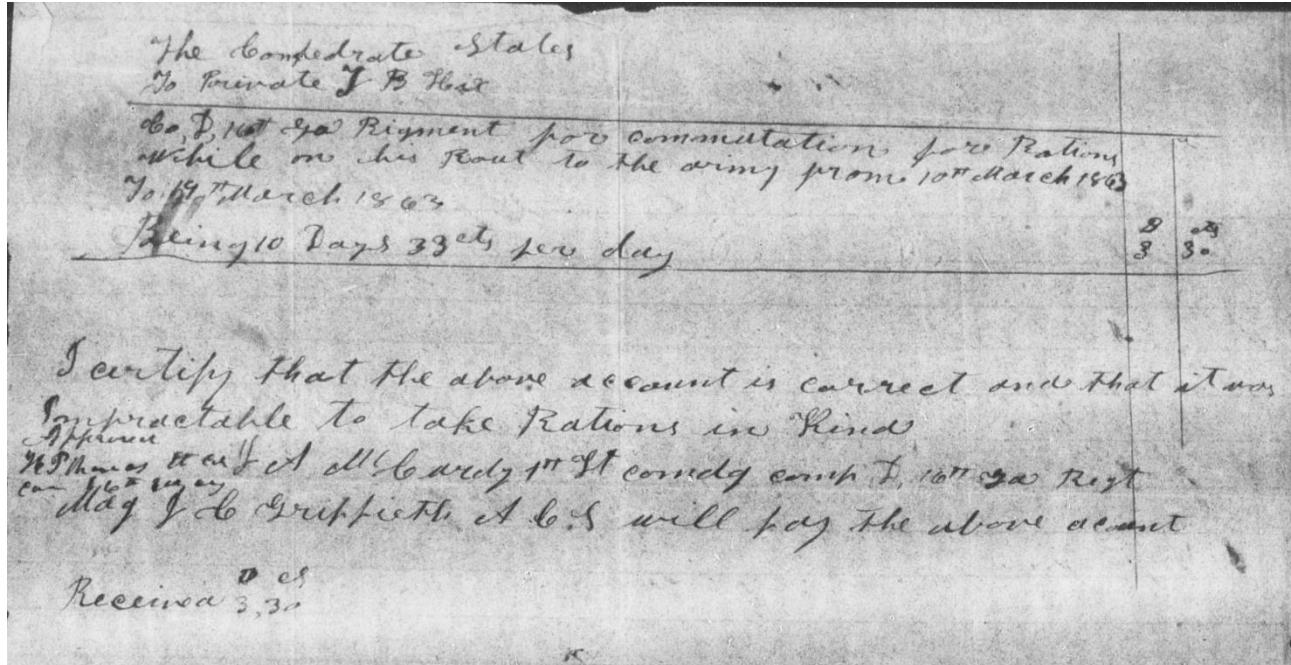 The Confedrate States
To Private J B Hix
Co, D, 16th Ga Rigment for commutation fore Rations
While on his Rout to the army from 10th March 1863
To 19th March 1863
D cts
Being 10 Days 33 cts per day 3 30
I certify that the above account is correct and that it was
Impractable to take Rations in Kind
Approved
H P Thomas Lt Col
J A McCurdy 1st Lt comdg comp D, 16th Ga Regt
16th
Maj J C Griffieth A C S will pay the above acount
D cts
Received 3,30